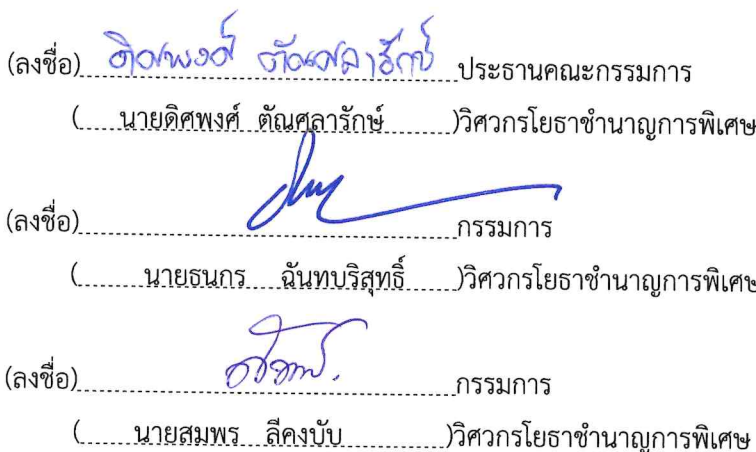 (ลงชื่อ) ดิศพงศ์ ตัณศลารักษ์ ประธานคณะกรรมการ
( นายดิศพงศ์ ตัณศลารักษ์ )วิศวกรโยธาชำนาญการพิเศษ
(ลงชื่อ) กรรมการ
( นายธนกร ฉันทบริสุทธิ์ )วิศวกรโยธาชำนาญการพิเศษ
(ลงชื่อ) กรรมการ
( นายสมพร ลีคงบับ )วิศวกรโยธาชำนาญการพิเศษ